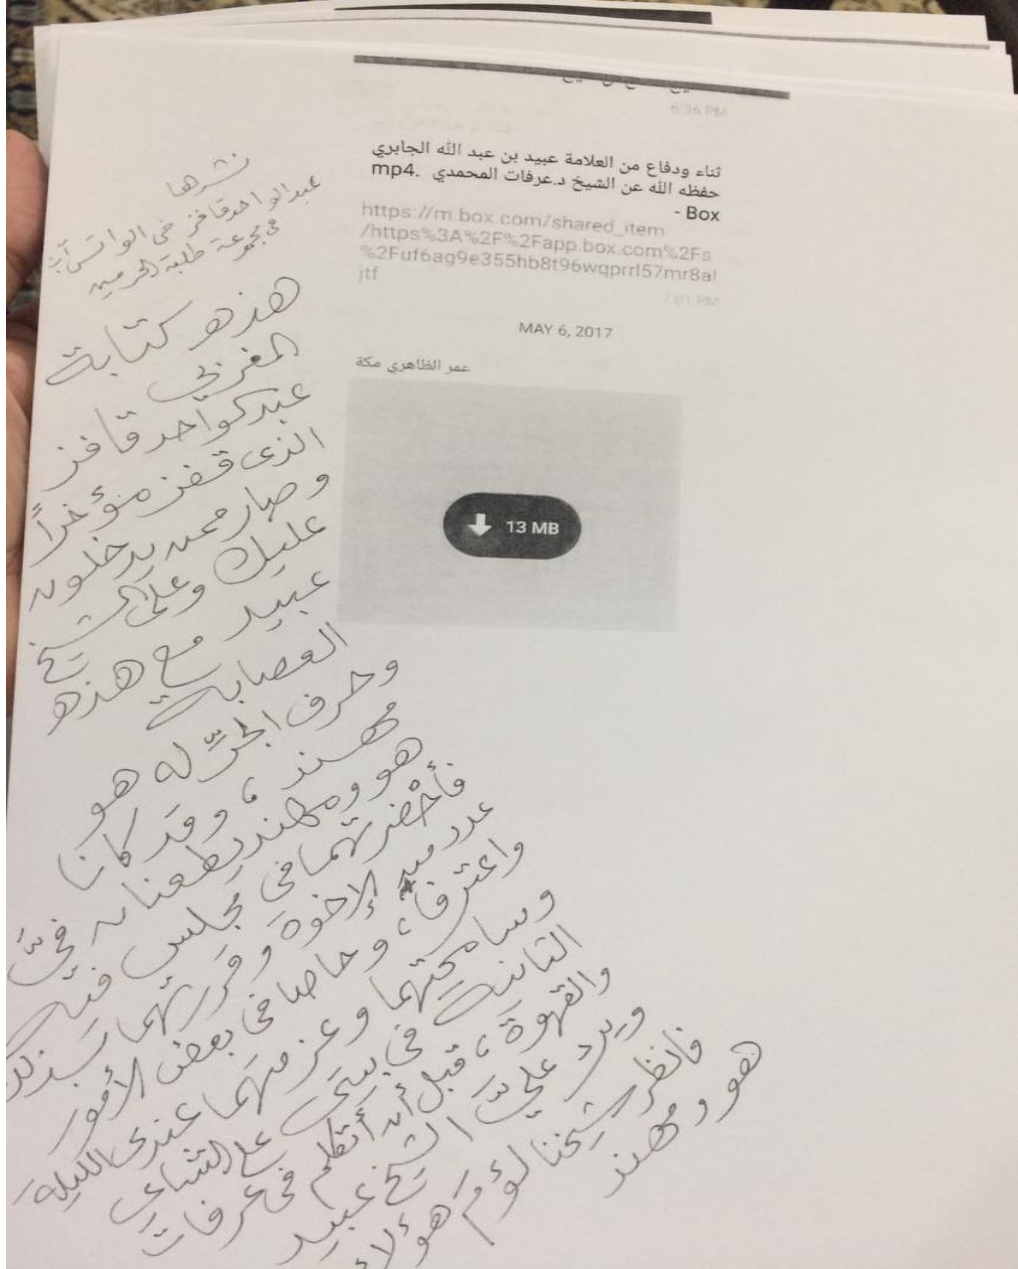 6:36 PM
ثناء ودفاع من العلامة عبيد بن عبد الله الجابري
حفظه الله عن الشيخ د.عرفات المحمدي .mp4
- Box
https://m.box.com/shared_item
/https%3A%2F%2Fapp.box.com%2Fs
%2Fuf6ag9e355hb8t96wqprrl57mr8a!
jtf
7:01 PM
MAY 6, 2017
عمر الظاهري مكة
13 MB
نشرها
عبدالواحد قافز في الواتس آب
في مجموعة طلبة الحرمين
هذه كتابة
المغربي
عبدالواحد قافز
الذي قفز مؤخراً
وصار ممن يدخلون
عليك وعلى الشيخ
عبيد مع هذه
العصابة
وحرف الجرّ له هو
مهند، وقد كانا
هو ومهند يطعنان فيّ
فأحضرتهما في مجلس فيه
عدد من الإخوة وقررتهما بذلك
واعترفا، وحاصا في بعض الأمور
وسامحتهما وعزمتهما عندي الليلة
الثانية في بيتي على الشاي
والقهوة، قبل أن أتكلم في عرفات
ويرد عليّ الشيخ عبيد
فانظر شيخنا لؤم هؤلاء
هو ومهند